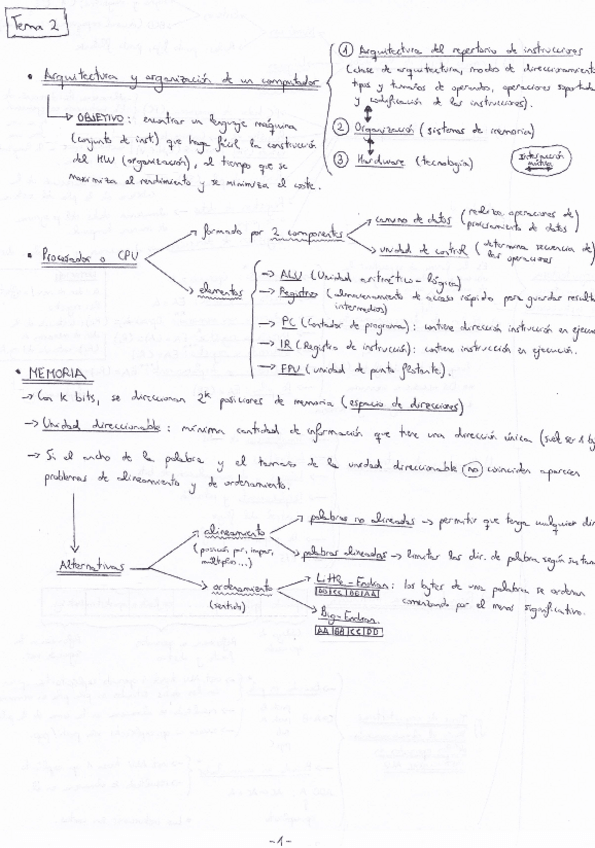 Tema 2
• Arquitectura y organización de un computador
① Arquitectura del repertorio de instrucciones
(clase de arquitectura, modos de direccionamiento
tipos y tamaños de operandos, operaciones soportada
y codificación de las instrucciones).
② Organización (sistemas de memoria)
③ Hardware (tecnología)
Interacción
mutua
OBJETIVO: encontrar un lenguaje máquina
(conjunto de inst) que haga fácil la construcción
del HW (organización), al tiempo que se
maximiza el rendimiento y se minimiza el coste.
• Procesador o CPU
formado por 2 componentes
camino de datos (realiza operaciones de
procesamiento de datos)
unidad de control (determina secuencia de
las operaciones
elementos
→ ALU (Unidad aritmético-lógica)
→ Registros (almacenamiento de acceso rápido para guardar result
intermedios)
→ PC (Contador de programa): contiene dirección instrucción en ejecu
→ IR (Registro de instrucción): contiene instrucción en ejecución.
→ FPU (unidad de punto flotante).
• MEMORIA
→ Con k bits, se direccionan 2^k posiciones de memoria (espacio de direcciones)
→ Unidad direccionable: mínima cantidad de información que tiene una dirección única (suele ser 1 b
→ Si el ancho de la palabra y el tamaño de la unidad direccionable no coinciden aparecen
problemas de alineamiento y de ordenamiento.
Alternativas
alineamiento
(posición par, impar,
múltiplos...)
palabras no alineadas → permitir que tenga cualquier dir
palabras alineadas → limitar las dir. de palabra según su tam
ordenamiento
(sentido)
Little-Endian: los bytes de una palabra se ordenan
comenzando por el menos significativo.
DD|CC|BB|AA
Big-Endian
AA|BB|CC|DD
-1-